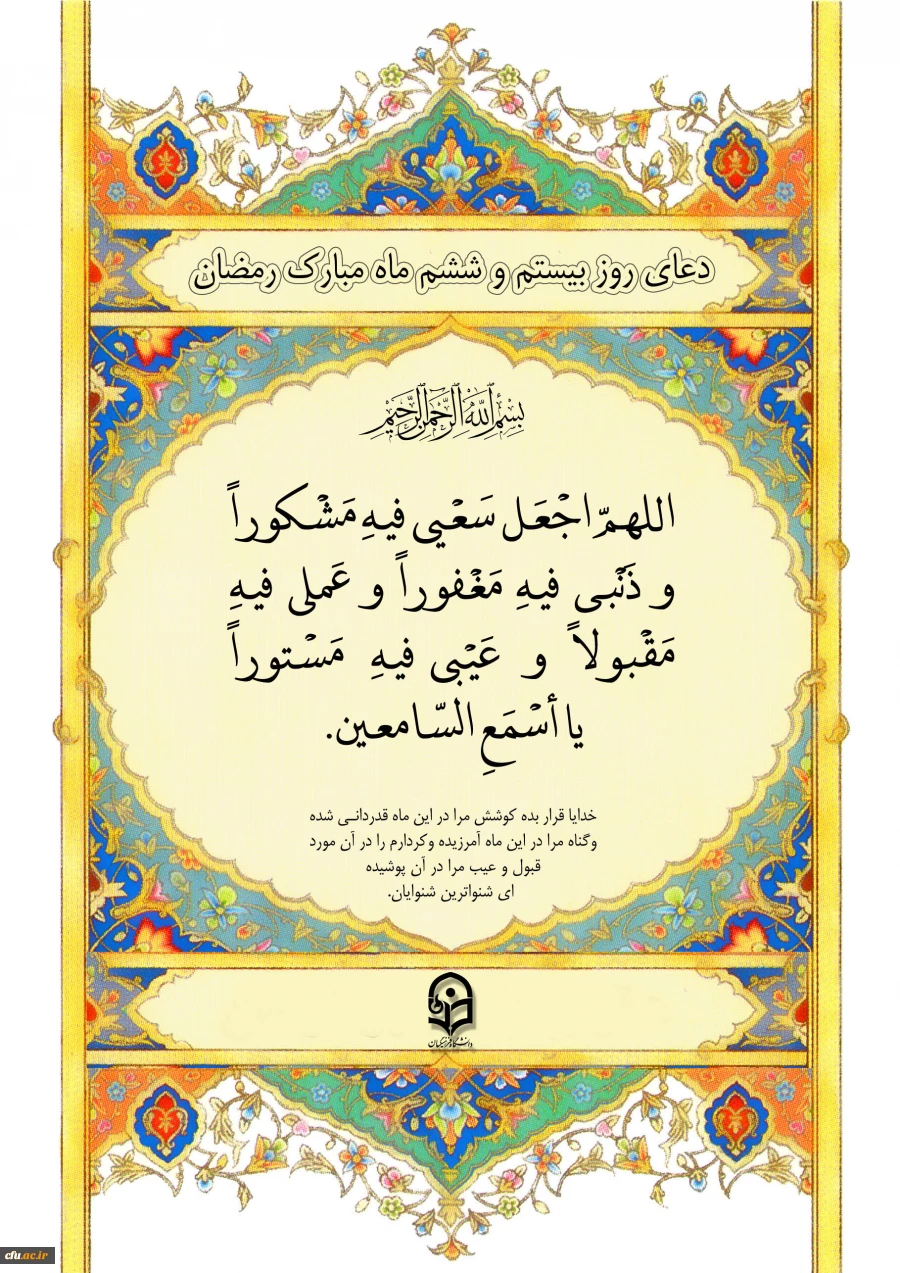 دعای روز بیستم و ششم ماه مبارک رمضان
بِسْمِ اللَّهِ الرَّحْمَنِ الرَّحِيمِ
اللهمّ اجْعَل سَعْیي فیهِ مَشْکوراً
و ذَنْبی فیهِ مَغْفوراً و عَملی فیهِ
مَقْبولاً و عَیْبی فیهِ مَسْتوراً
یا أسْمَعِ السّامعین.
خدایا قرار بده کوشش مرا در این ماه قدردانـی شده
وگناه مرا در این ماه آمرزیده وکردارم را در آن مورد
قبول و عیب مرا در آن پوشیده
ای شنواترین شنوایان.
دانشگاه فرهنگیان
cfu.ac.ir